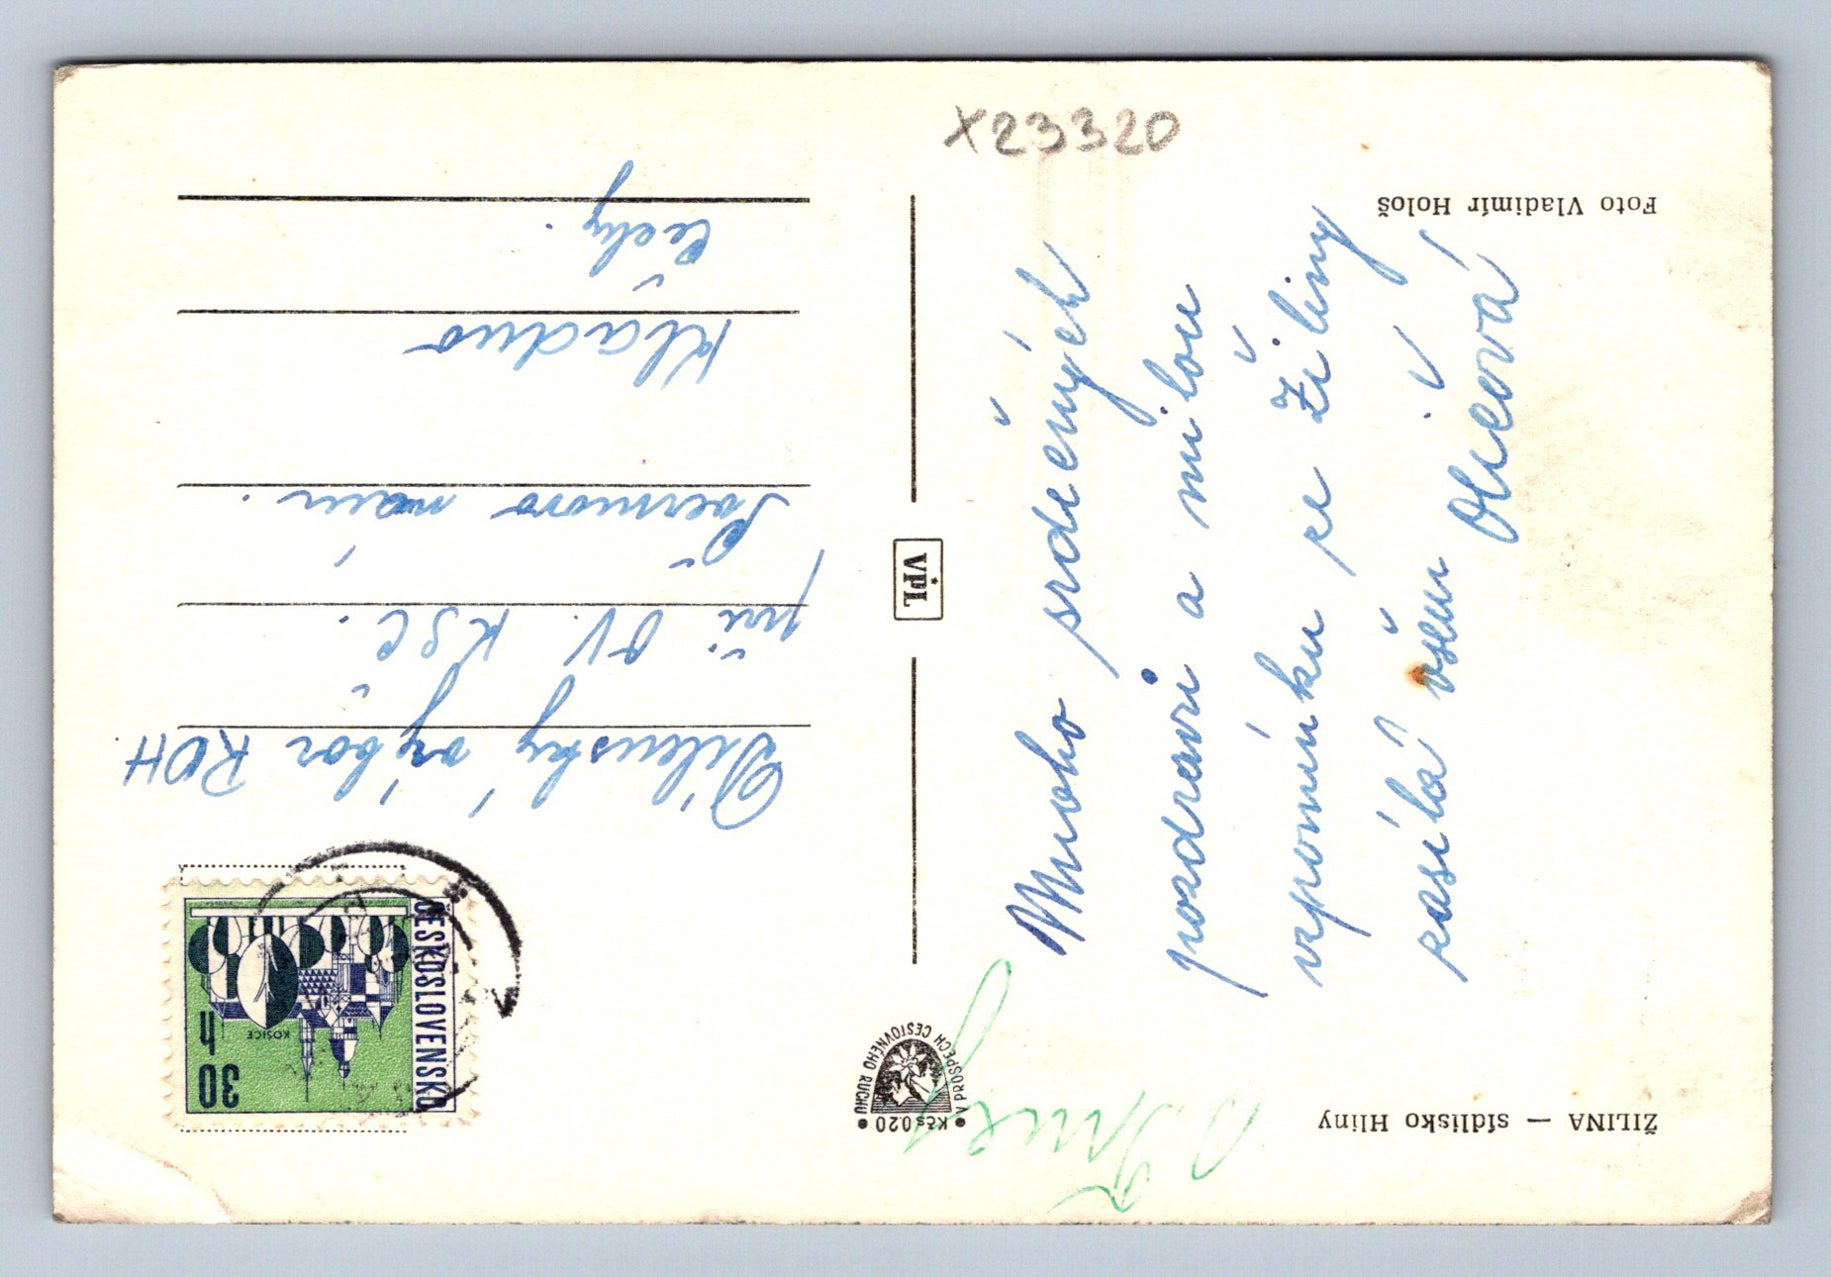 ŽILINA — sídlisko Hliny
Mnoho srdečných
pozdravů a milou
vzpomínku ze Žiliny
zasílá všem
Foto Vladimír Hološ
Kčs 0.20
V PROSPECH CESTOVNÉHO RUCHU
VPL
ČESKOSLOVENSKO
30 h
KOŠICE
Dílenský výbor ROH
při OV. KSČ.
Švermovo nám.
Kladno
Čechy.
X23320